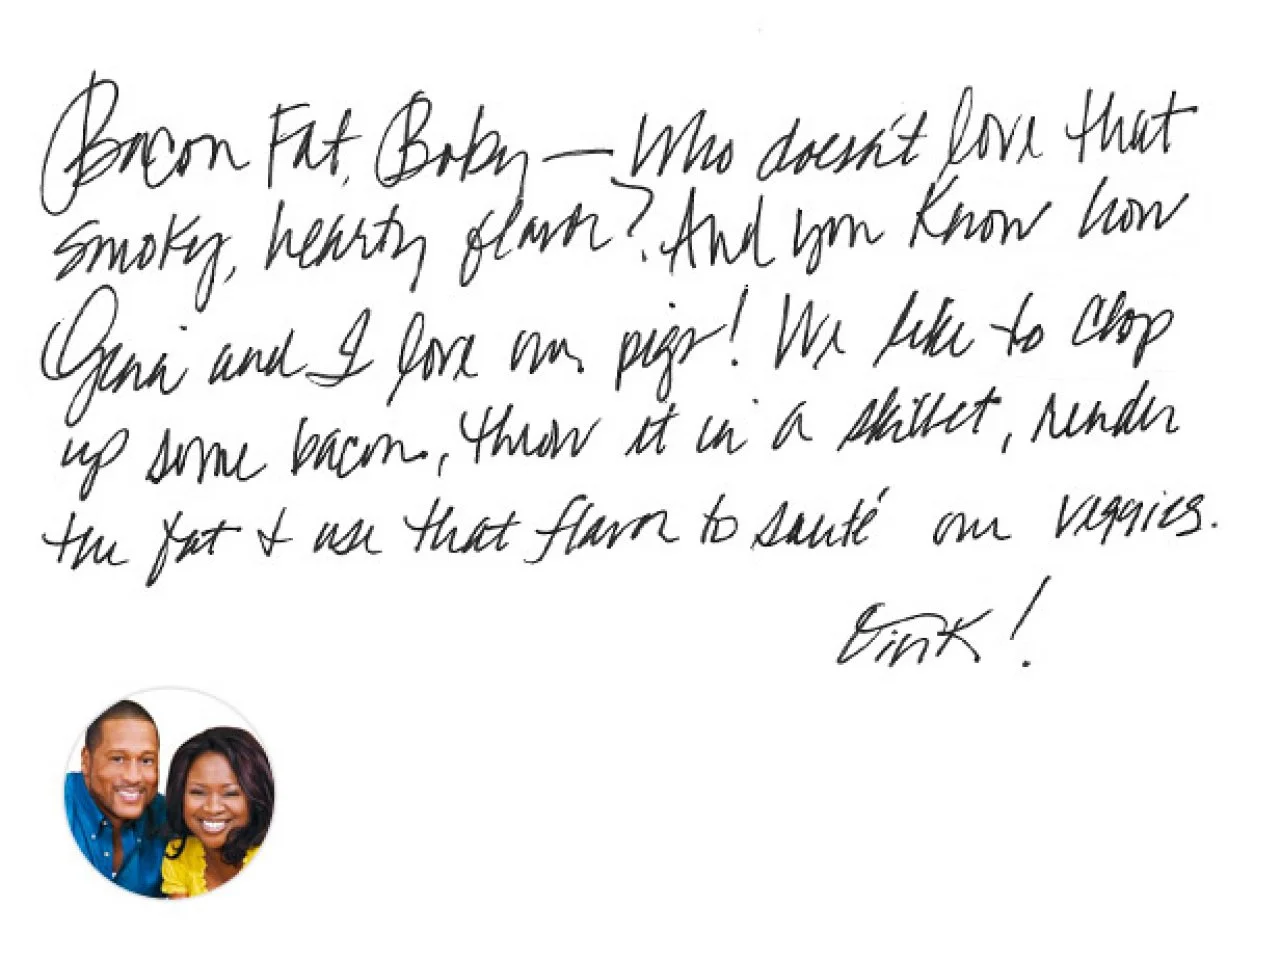 Bacon Fat, Baby — Who doesn't love that
smoky, hearty flavor? And you know how
Gina and I love our pigs! We like to chop
up some bacon, throw it in a skillet, render
the fat & use that flavor to sauté our veggies.
Oink!